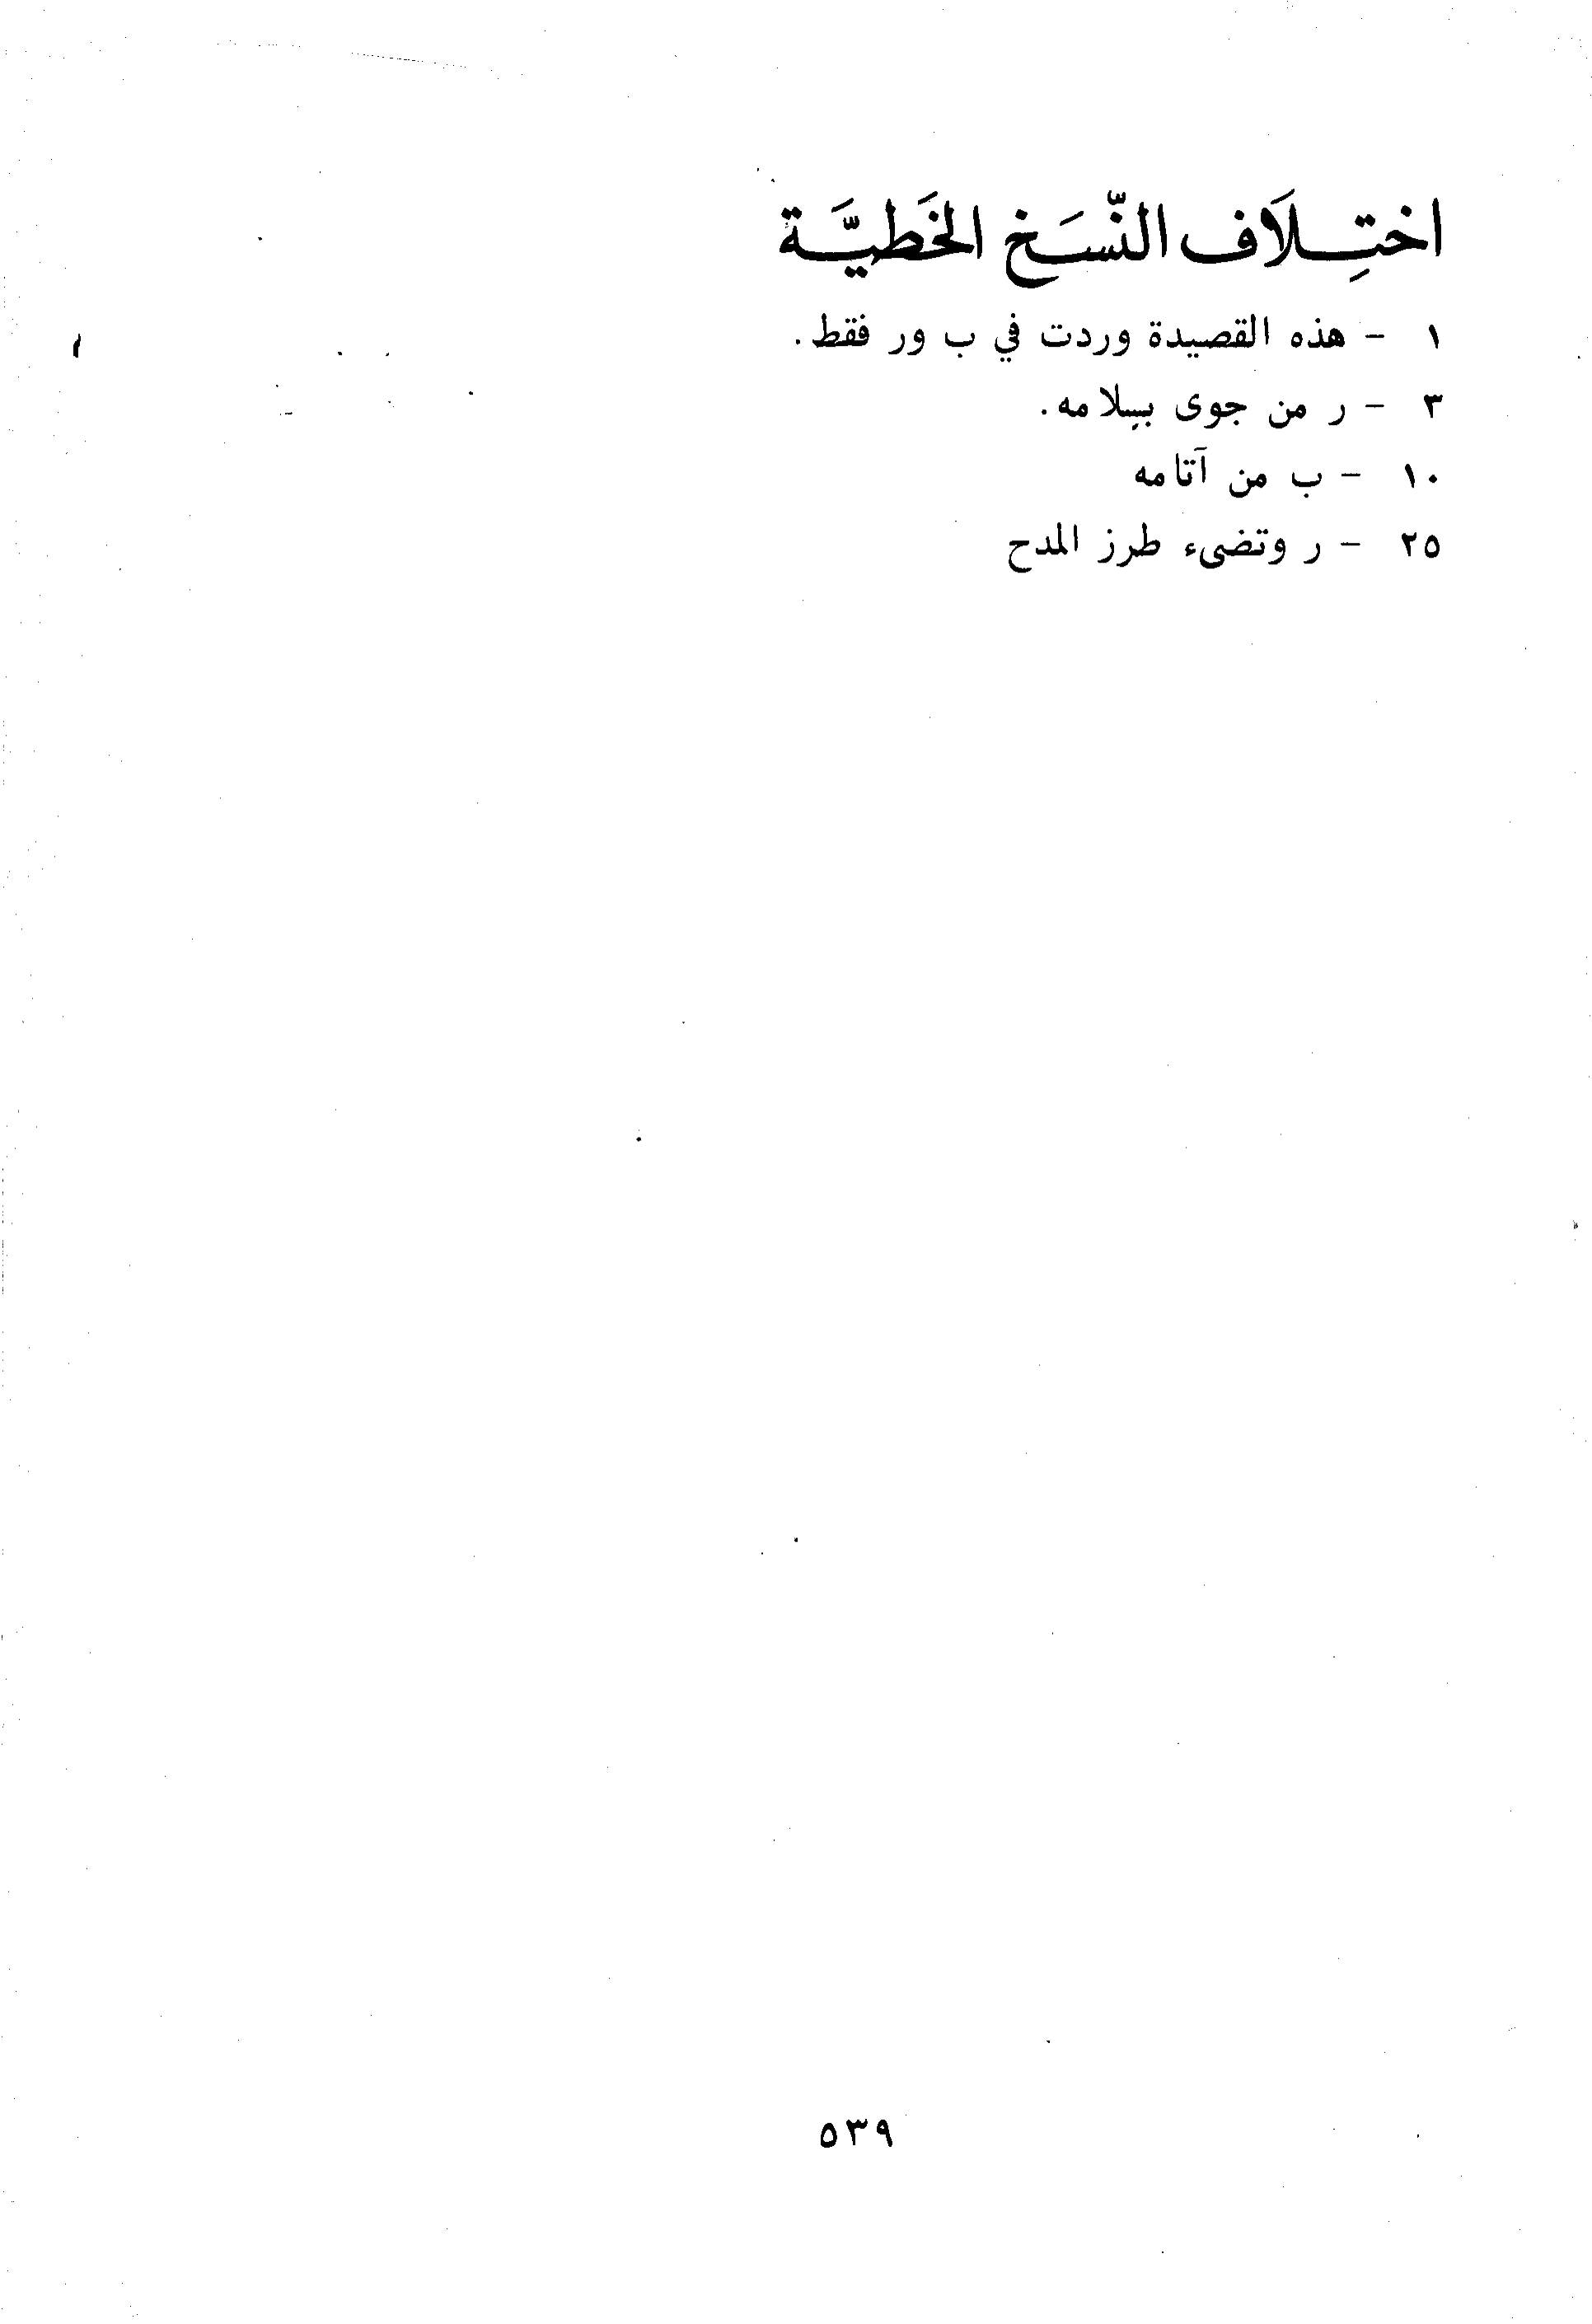 اختِلَاف النّسَخ الخَطيَّة
١ - هذه القصيدة وردت في ب ور فقط.
٣ - ر من جوى بسلامه.
١٠ - ب من آتامه
٢٥ - ر وتضيء طرز المدح
٥٣٩